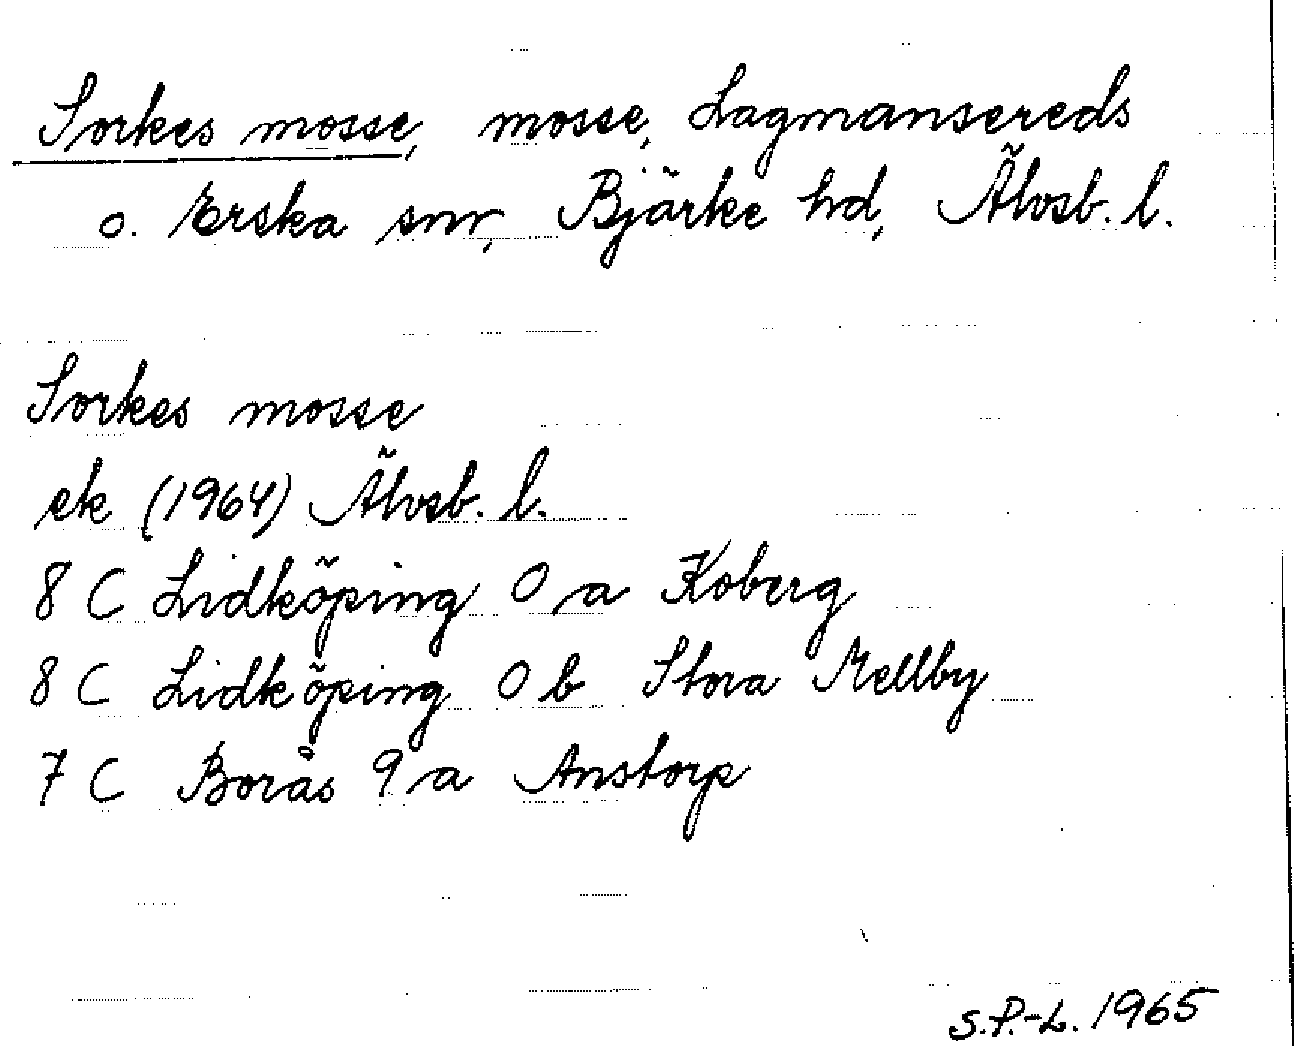 Sorkes mosse, mosse, Lagmansereds
o. Erska snr, Bjärke hd, Älvsb. l.
Sorkes mosse
ek (1964) Älvsb. l.
8 C Lidköping 0 a Koberg
8 C Lidköping 0 b Stora Mellby
7 C Borås 9 a Anstorp
S.P.-L. 1965